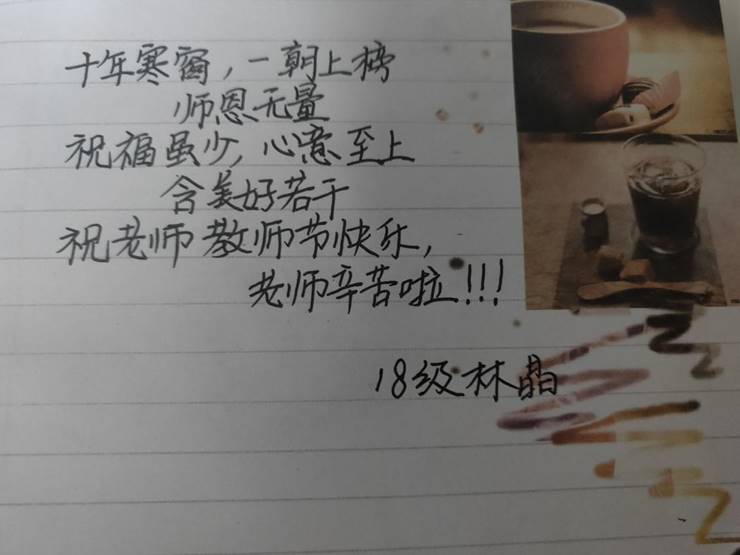 十年寒窗，一朝上榜
师恩无量
祝福虽少，心意至上
含美好若干
祝老师教师节快乐，
老师辛苦啦!!!
18级林晶